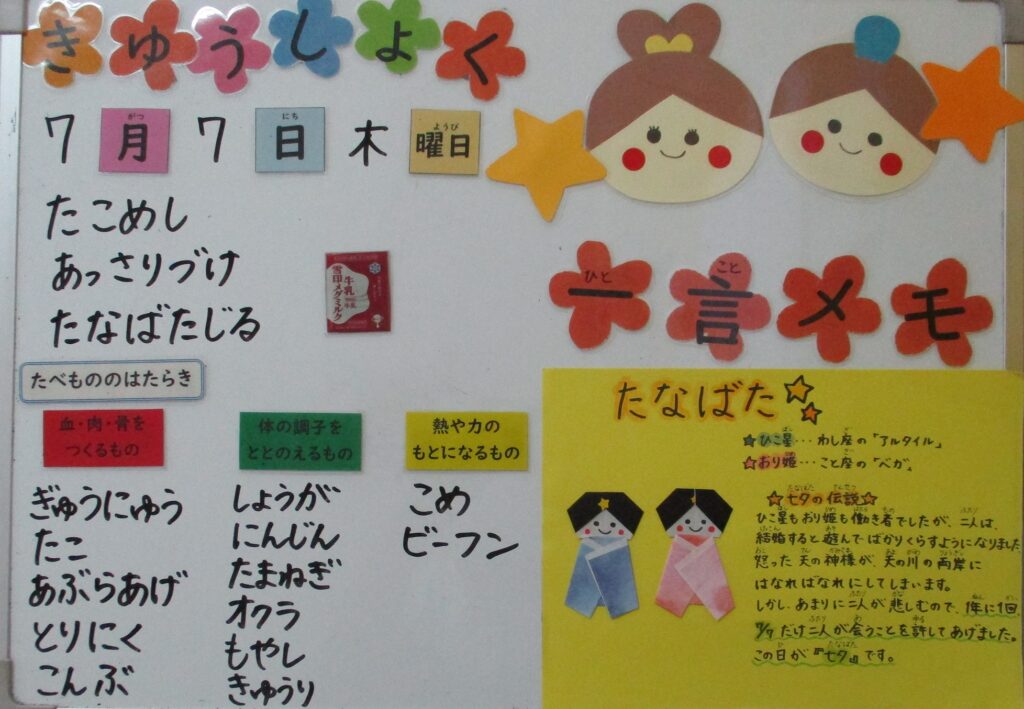 きゅうしょく
7月7日木曜日
たこめし
あっさりづけ
たなばたじる
雪印メグミルク
牛乳
たべもののはたらき
血・肉・骨を
つくるもの
ぎゅうにゅう
たこ
あぶらあげ
とりにく
こんぶ
体の調子を
ととのえるもの
しょうが
にんじん
たまねぎ
オクラ
もやし
きゅうり
熱や力の
もとになるもの
こめ
ビーフン
一言メモ
たなばた
ひこ星…わし座の「アルタイル」
おり姫…こと座の「ベガ」
☆七夕の伝説☆
ひこ星もおり姫も働き者でしたが、二人は、
結婚すると遊んでばかりくらすようになりました。
怒った天の神様が、天の川の両岸に
はなればなれにしてしまいます。
しかし、あまりに二人が悲しむので、1年に1回、
7/7だけ二人が会うことを許してあげました。
この日が『七夕』です。